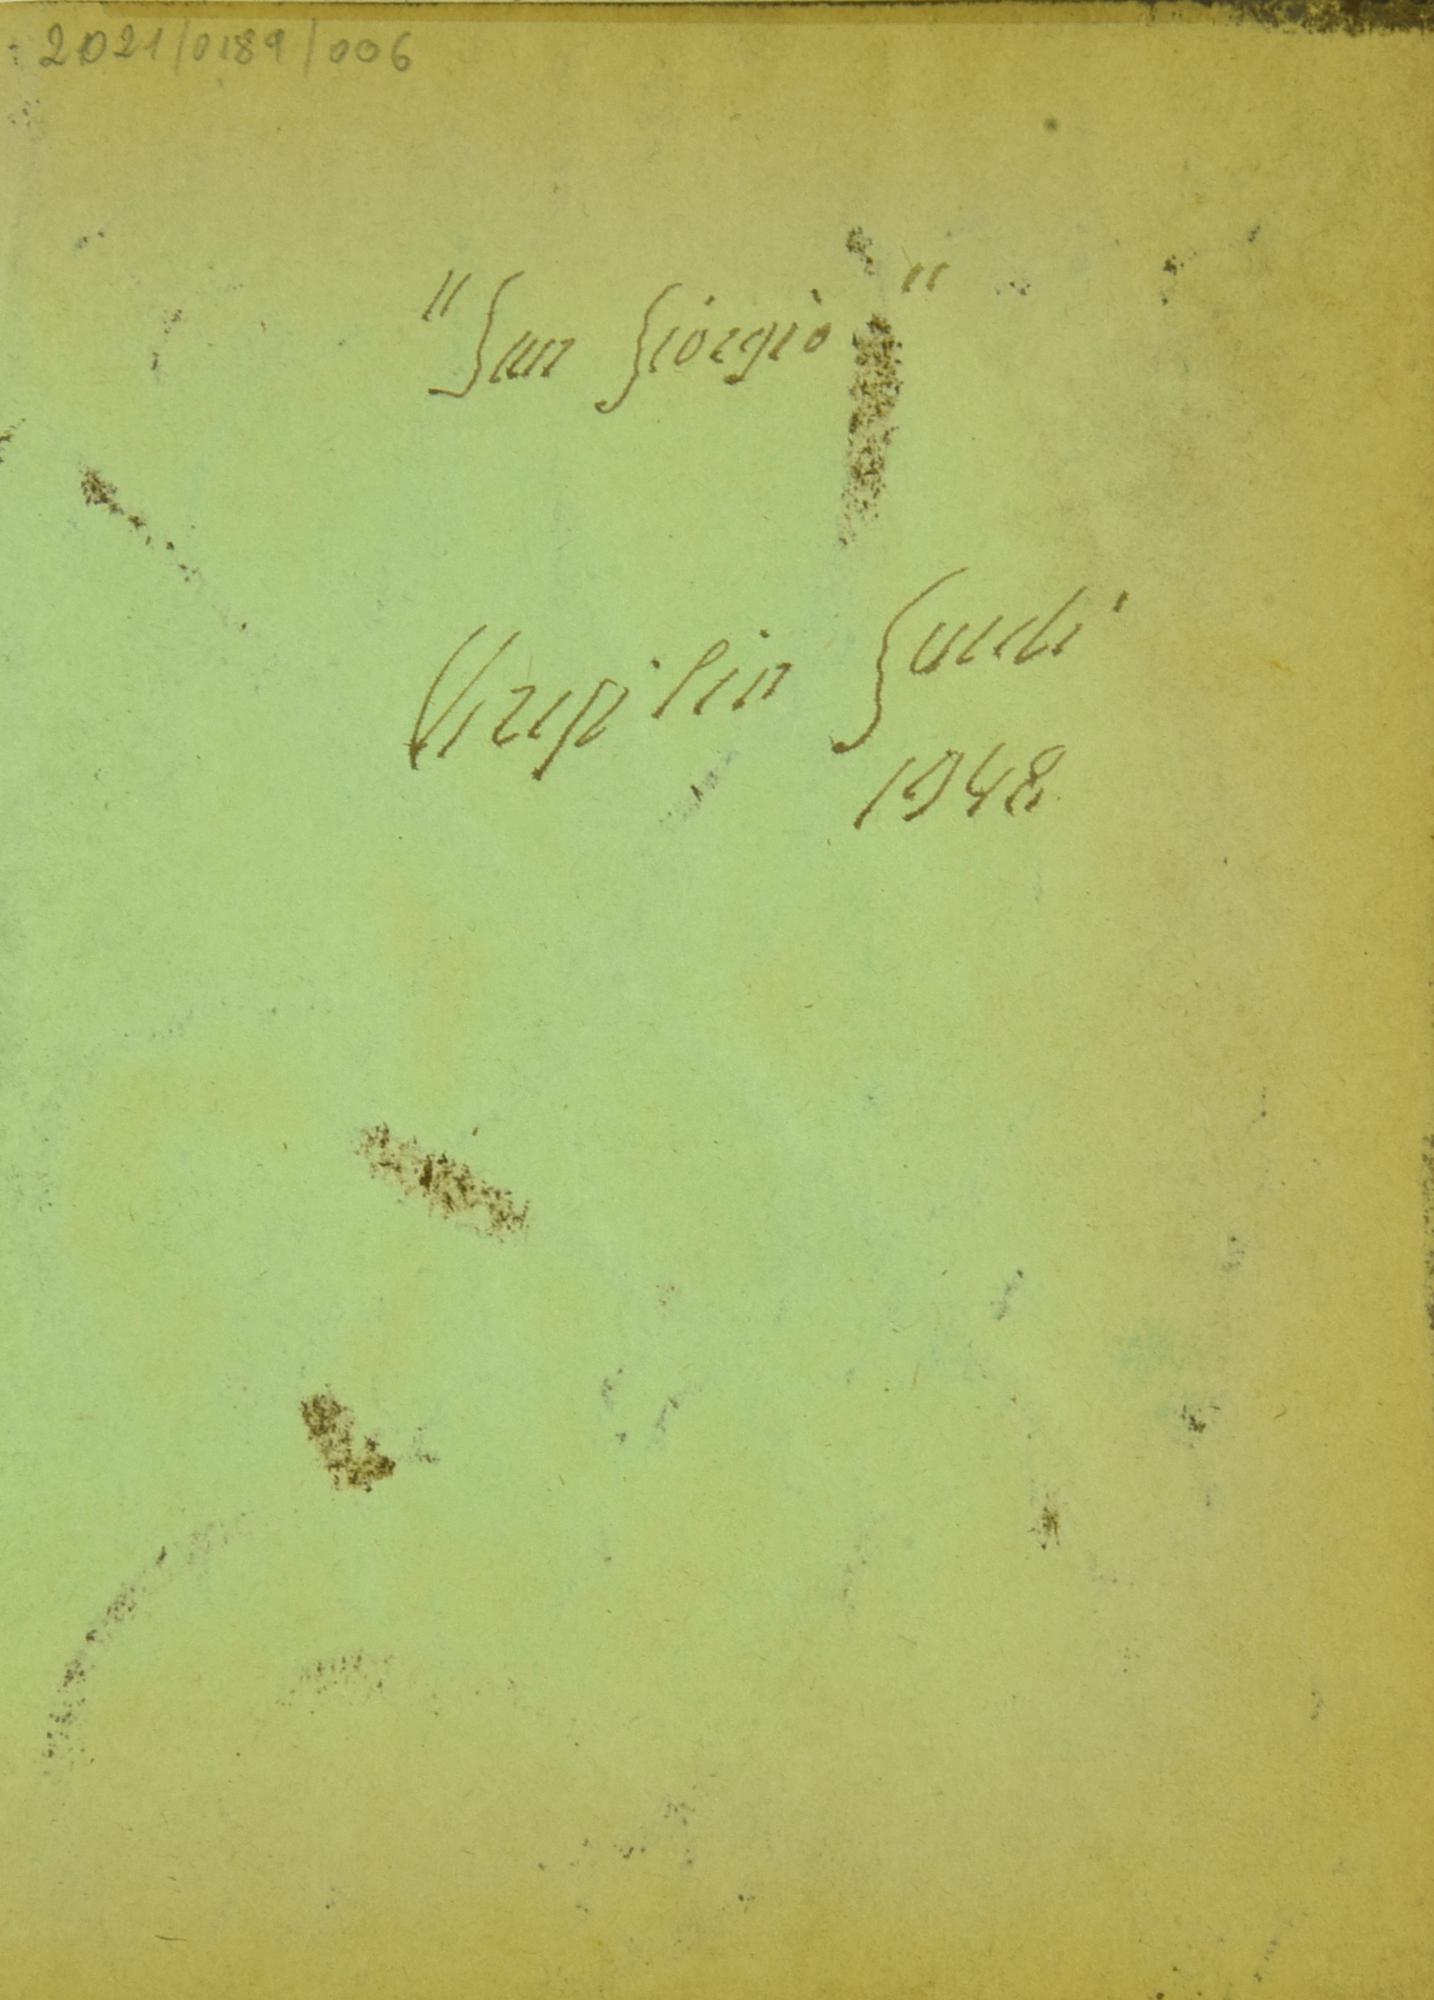 2021/0189/006
"San Giorgio"
Virgilio Guidi
1948